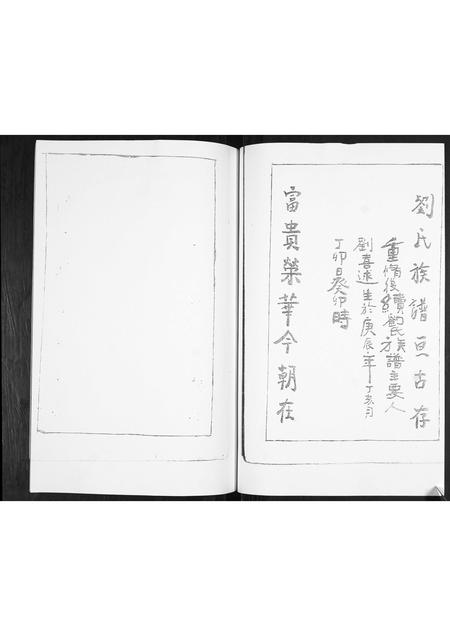 劉氏族譜亘古存
重脩後續劉氏族譜主要人
劉喜遠生於庚辰年丁亥月
丁卯日癸卯時
富貴榮華今朝在